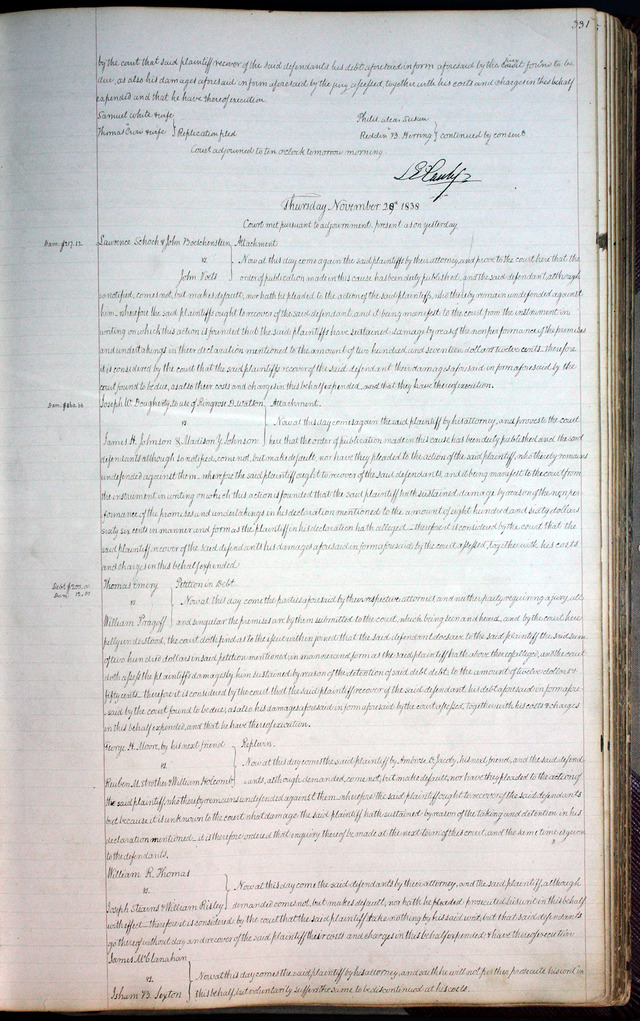 331
by the court that said plaintiff recover of the said defendants his debt aforesaid in form aforesaid by the court found to be
due, as also his damages aforesaid in form aforesaid by the jury assessed, together with his costs and charges in this behalf
expended and that he have thereof execution.
Samuel White & wife
vs
Thomas Crow & wife } Replication pled
Philis alias Susan
vs
Reddin B. Herring } continued by consent
Court adjourned to ten o'clock tomorrow morning.
Thursday November 29th 1838
Court met pursuant to adjournment, present as on yesterday
Dam. $217.12
Lawrence Schoch & John Boeschenstein } Attachment
vs
Now at this day come again the said plaintiffs by their attorney, and prove to the court here that the
John Voets
order of publication made in this cause has been duly published, and the said defendant although
so notified, comes not, but makes default, nor hath he pleaded to the action of the said plaintiffs, who thereby remain undefended against
him. wherefore the said plaintiffs ought to recover of the said defendant, and it being manifest to the court from the instrument in
writing on which this action is founded that the said plaintiffs have sustained damage by reason of the nonperformance of the promises
and undertakings in their declaration mentioned to the amount of two hundred and seventeen dollars twelve cents. therefore
it is considered by the court that the said plaintiffs recover of the said defendant their damages aforesaid in form aforesaid by the
court found to be due, as also their costs and charges in this behalf expended, and that they have thereof execution.
Joseph W. Dougherty, to use of Ringrose D. Watson } Attachment.
vs
Now at this day comes again the said plaintiff by his attorney, and proves to the court
James H. Johnson & Madison J. Johnson
here that the order of publication made in this cause has been duly published and the said
defendants although so notified, come not, but make default, nor have they pleaded to the action of the said plaintiff, who thereby remains
undefended against them, wherefore the said plaintiff ought to recover of the said defendants, and it being manifest to the court from
the instrument in writing on which this action is founded that the said plaintiff hath sustained damage by reason of the nonper
formance of the promises and undertakings in his declaration mentioned to the amount of eight hundred and sixty dollars
sixty six cents in manner and form as the plaintiff in his declaration hath alleged. therefore it is considered by the court that the
said plaintiff recover of the said defendants his damages aforesaid in form aforesaid by the court assessed, together with his costs
and charges in this behalf expended
Debt $200.00
Dam. 12.50
Thomas Emery } Petition in Debt.
vs
Now at this day come the parties aforesaid by their respective attornies and neither party requiring a jury, all
William
and singular the premises are by them submitted to the court, which being seen and heard, and by the court here
fully understood, the court doth find as to the issue within joined that the said defendant does owe to the said plaintiff the said sum
of two hundred dollars in said petition mentioned in manner and form as the said plaintiff hath above thereof alleged, and the court
doth assess the plaintiff's damages by him sustained by reason of the detention of said debt to the amount of twelve dollars &
fifty cents. therefore it is considered by the court that the said plaintiff recover of the said defendant, his debt aforesaid in form afore-
said by the court found to be due, as also his damages aforesaid in form aforesaid by the court assessed, together with his costs & charges
in this behalf expended, and that he have thereof execution.
George H. Moore, by his next friend } Replevin.
vs
Now at this day comes the said plaintiff by Ambrose next friend, and the said defend
Reuben M. Strother & William Holcomb
ants, although demanded, come not, but make default, nor have they pleaded to the action of
the said plaintiff, who thereby remains undefended against them. wherefore the said plaintiff ought to recover of the said defendants
but because it is unknown to the court what damage the said plaintiff hath sustained by reason of the taking and detention in his
declaration mentioned. it is therefore ordered that inquiry thereof be made at the next term of this court, and the same time is given
to the defendants.
William R. Thomas
vs
Now at this day come the said defendants by their attorney, and the said plaintiff, although
Joseph Stearns & William Risley
demanded comes not, but makes default, nor hath he pleaded, prosecuted his writ in this behalf
with effect. therefore it is considered by the court that the said plaintiff take nothing by his said writ, but that said defendants
go thereof without day and recover of the said plaintiff their costs and charges in this behalf expended & have thereof execution
James McClanahan
vs
Now at this day comes the said plaintiff by his attorney, and saith he will not further prosecute his writ in
Isham B. Sexton
this behalf, but voluntarily suffers the same to be discontinued at his costs.